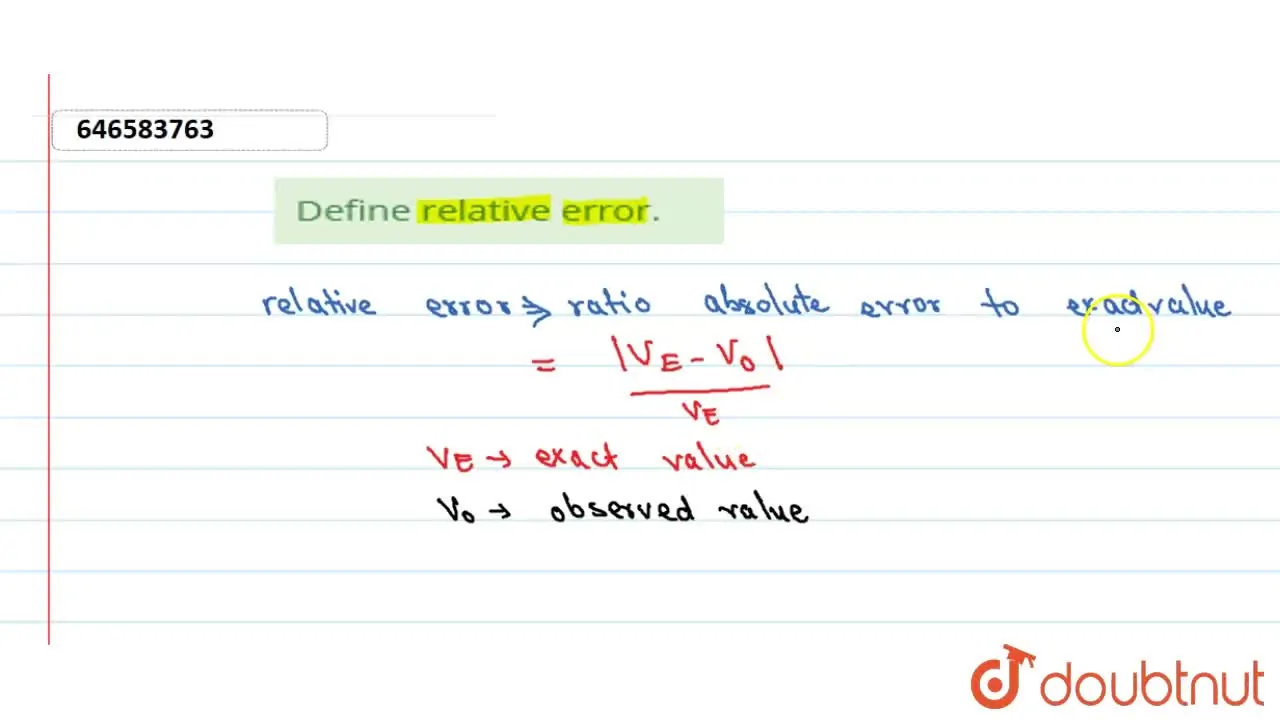 646583763
Define relative error.
relative error ⇒ ratio absolute error to exact value
= |VE - VO|
VE
VE → exact value
VO → observed value
doubtnut